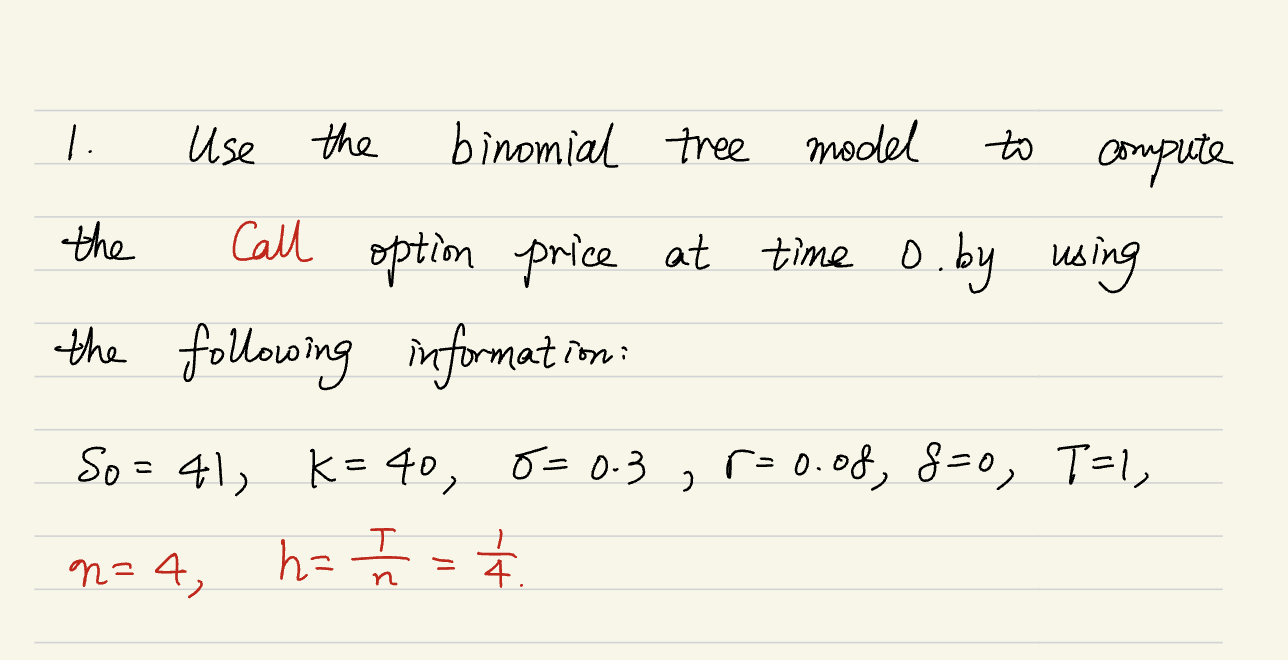 1. Use the binomial tree model to compute
the Call option price at time 0. by using
the following information:
S₀ = 41, K = 40, σ = 0.3, r = 0.08, δ = 0, T = 1,
n = 4, h = T/n = 1/4.